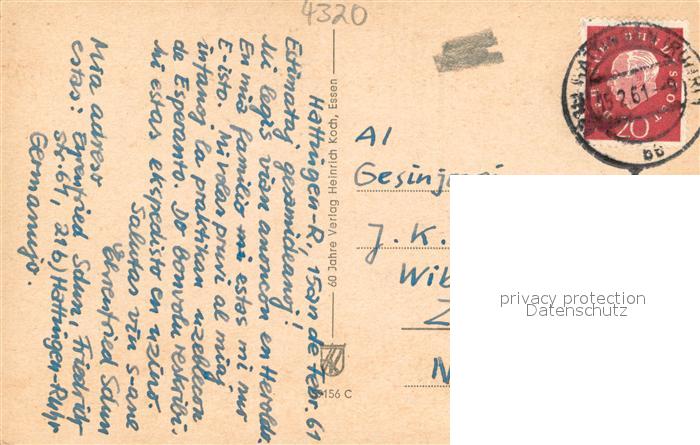 4320
Hattingen-R., 15an de febr. 61
Estimataj gesamideanoj!
Mi legis vian anoncon en Heroldo.
En mia familio mi estas mi nur
E-isto. Mi volas pruvi al miaj
infanoj la praktikan uzeblecon
de Esperanto. Do bonvolu reskribi.
Mi estas ekspedisto en uzino.
Salutas vin s-ane
Ehrenfried Sdun
Mia adreso
estas: Ehrenfried Sdun, Friedrich-
str. 64, 21b) Hattingen-Ruhr
Germanujo.
60 Jahre Verlag Heinrich Koch, Essen
156 C
Al
Gesinjoroj
J. K.
Wib
Z
N
DEUTSCHE BUNDESPOST
20
HATTINGEN (RUHR)
2.61
bb
privacy protection
Datenschutz